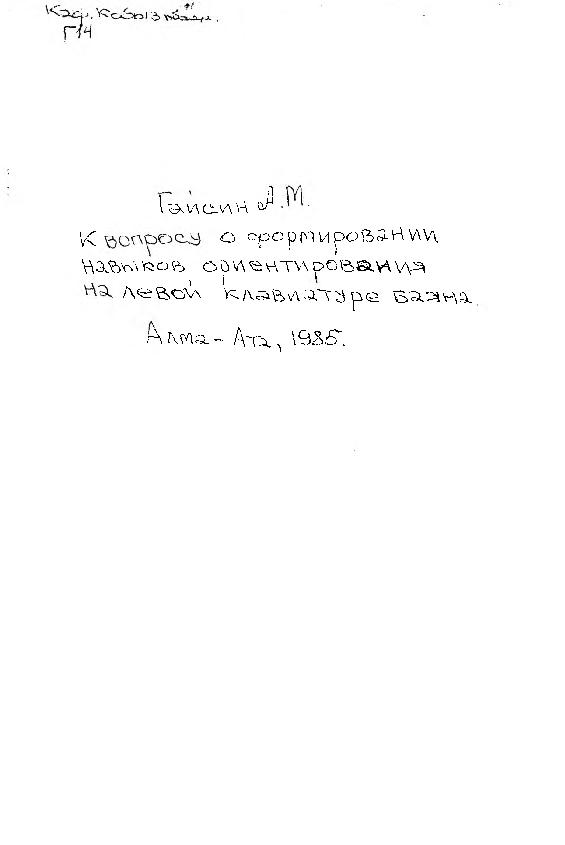 Каф. Кобыз
Г14
Гайсин А.М.
К вопросу о формировании
навыков ориентирования
на левой клавиатуре баяна.
Алма-Ата, 1985.